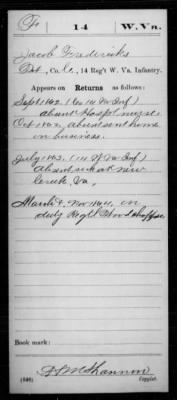 F 14 W.Va.
Jacob Fredericks
Pvt., Co. C., 14 Reg't W. Va. Infantry.
Appears on Returns as follows:
Sept. 1862. (Co. 14 W. Inf)
absent Hospl nurse.
Oct 1862, absent sent home
on business.
July 1863. (14 W. Va Inf)
Absent sick at new
Creek, Va.
March & Nov 1864, on
duty Regtl
Book mark:
D. McShannon
(546) Copyist.